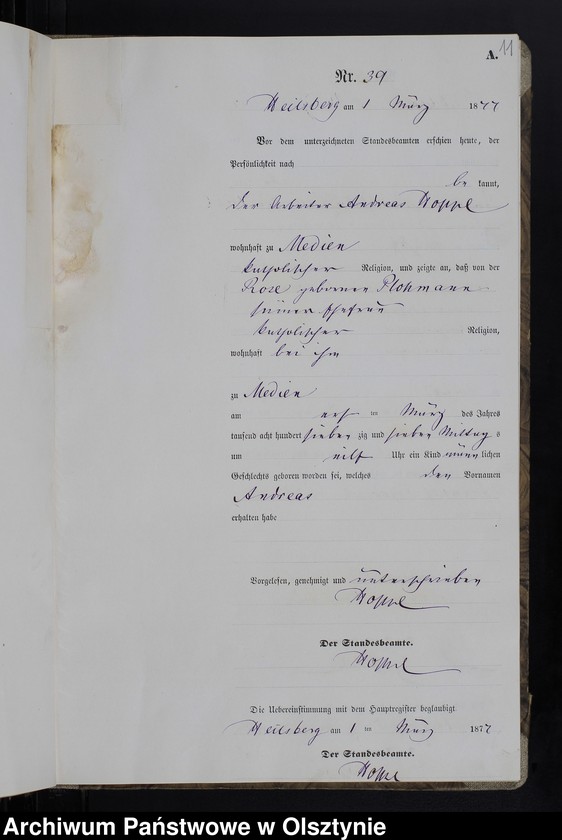 A. 11
Nr. 39
Heilsberg am 1 März 1877
Vor dem unterzeichneten Standesbeamten erschien heute, der
Persönlichkeit nach
be kannt,
der Arbeiter Andreas Hoppe
wohnhaft zu Medien
katholischer Religion, und zeigte an, daß von der
Rosa geborenen Plohmann
seiner Ehefrau
katholischer Religion,
wohnhaft bei ihm
zu Medien
am ersten März des Jahres
tausend acht hundert sieben zig und sieben Mittag s
um Uhr ein Kind männ lichen
Geschlechts geboren worden sei, welches den Vornamen
Andreas
erhalten habe
Vorgelesen, genehmigt und unterschrieben
Hoppe
Der Standesbeamte.
Hoppe
Die Uebereinstimmung mit dem Hauptregister beglaubigt
Heilsberg am 1 ten März 1877
Der Standesbeamte.
Hoppe
Archiwum Państwowe w Olsztynie